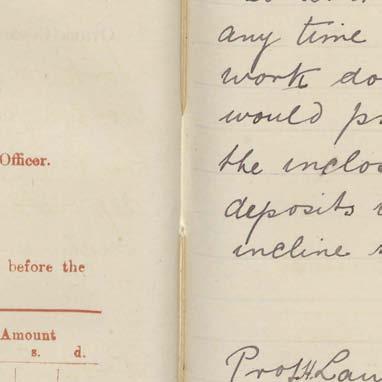 Officer.
before the
Amount
s. d.
any time
work do
would pr
the inclos
deposits
incline s
Prof H Lau